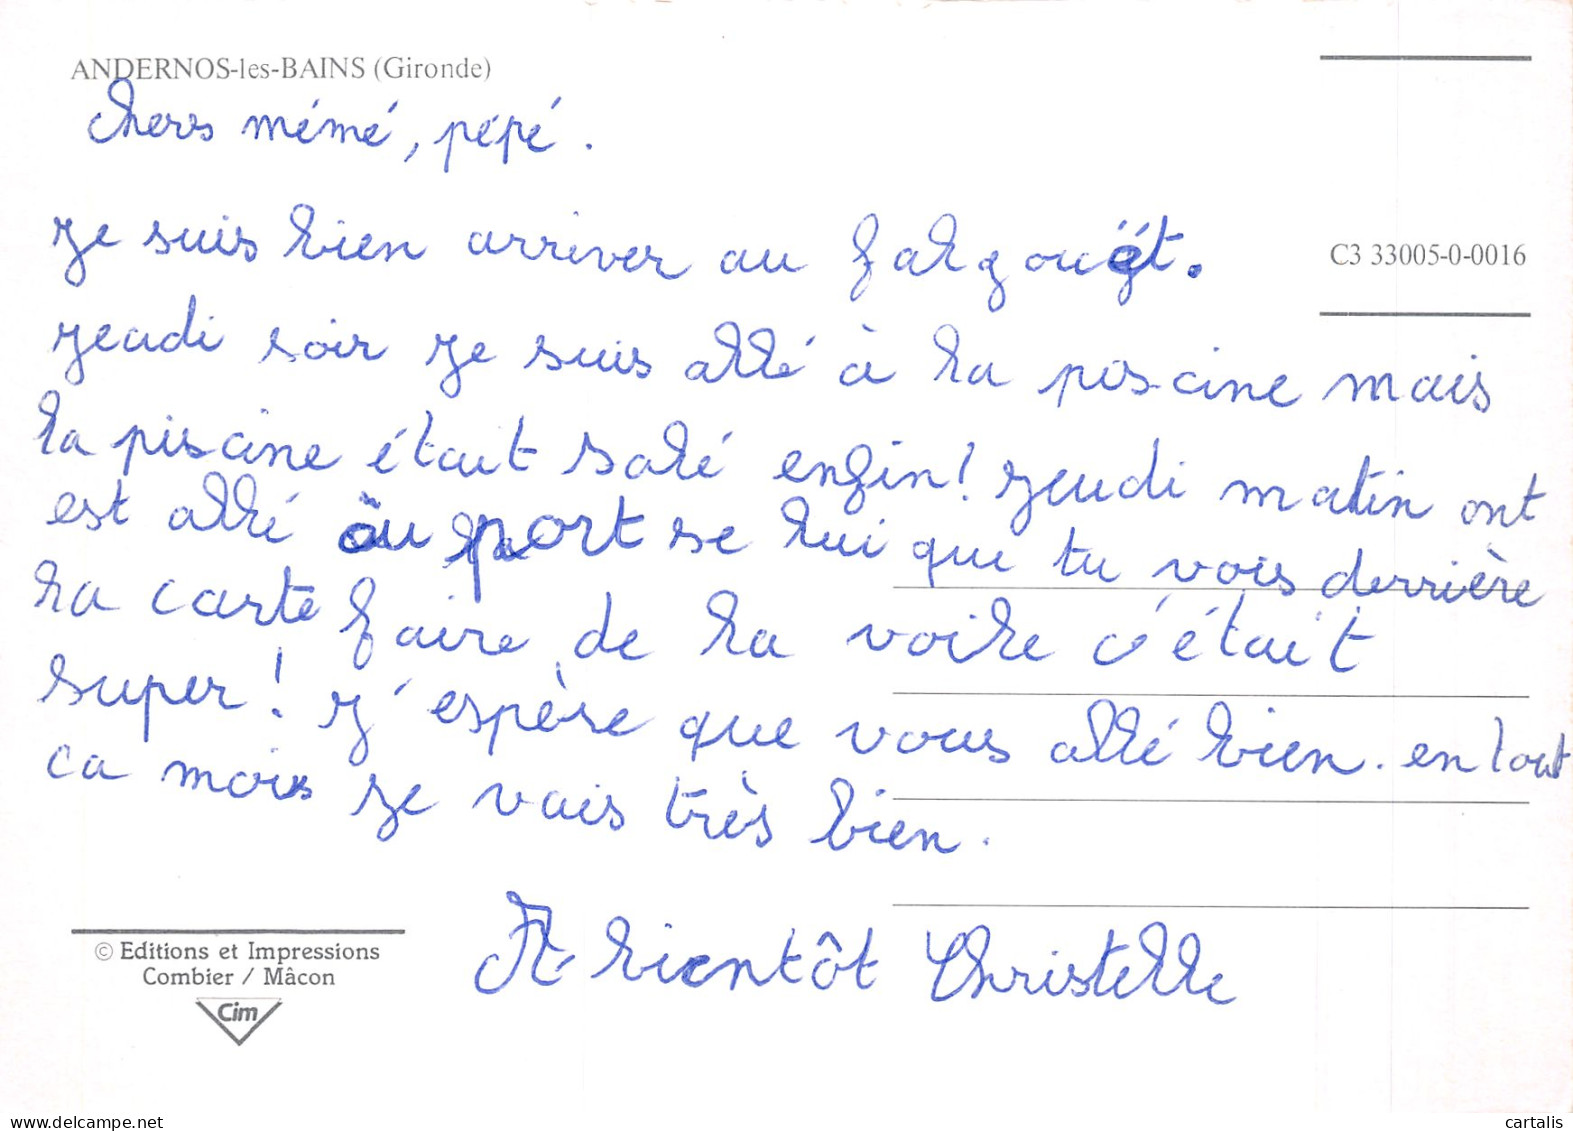 ANDERNOS-les-BAINS (Gironde)
chers mémé, pépé.
Je suis bien arriver au falgouët.
C3 33005-0-0016
jeudi soir je suis allé à la piscine mais
la piscine était salé enfin! jeudi matin ont
est allé au port se lui que tu vois derrière
la carte faire de la voile c'était
super! J'espère que vous allé bien. en tout
ca mois je vais très bien.
A bientôt Christelle
© Editions et Impressions
Combier / Mâcon
Cim
delcampe.net
cartalis